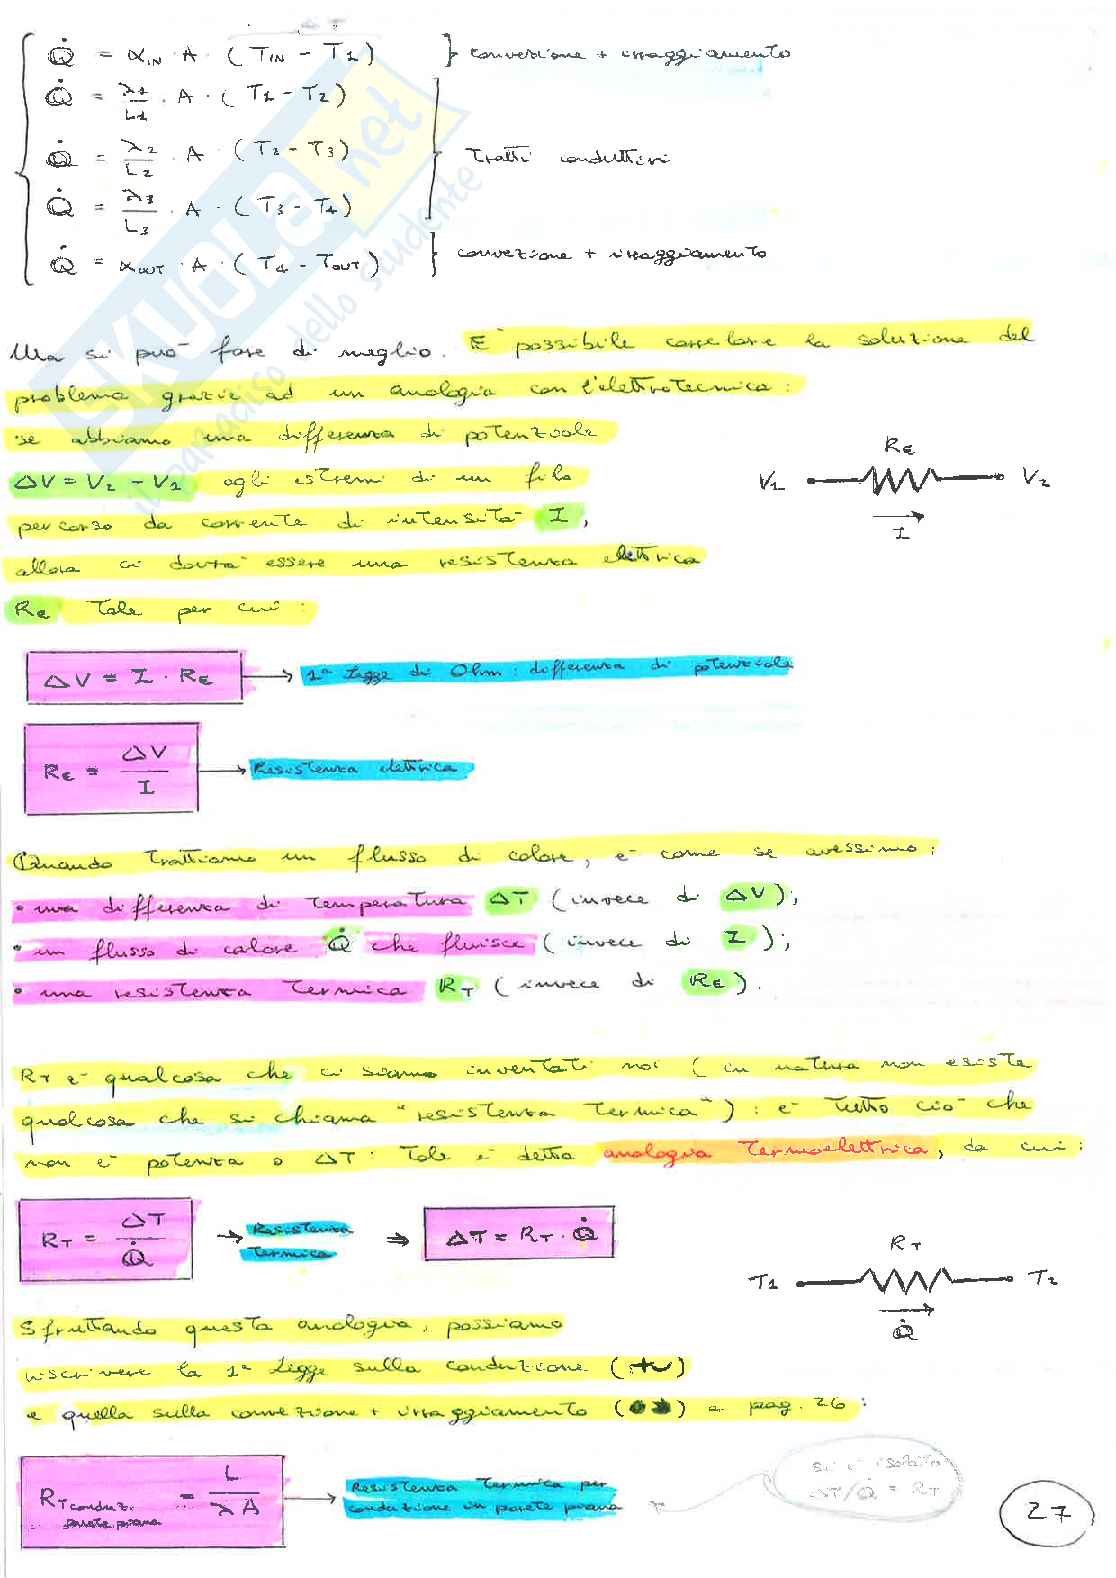 ΔT
Q̇ = α_IN · A · (T_IN - T_1) } convezione + irraggiamento
Q̇ = λ_1/L_1 · A · (T_1 - T_2)
Q̇ = λ_2/L_2 · A · (T_2 - T_3) } Tratti conduttivi
Q̇ = λ_3/L_3 · A · (T_3 - T_4)
Q̇ = α_OUT · A · (T_4 - T_OUT) } convezione + irraggiamento
SKUOLA.net
il paradiso dello studente
Ma si può fare di meglio. È possibile correlare la soluzione del
problema grazie ad un analogia con l'elettrotecnica:
se abbiamo una differenza di potenziale
ΔV = V_2 - V_1 agli estremi di un filo
percorso da corrente di intensità I,
allora ci dovrà essere una resistenza elettrica
R_E tale per cui:
V_1 R_E V_2
I
ΔV = I · R_E → 1ª Legge di Ohm: differenza di potenziale
R_E = ΔV/I → Resistenza elettrica
Quando trattiamo un flusso di calore, è come se avessimo:
• una differenza di temperatura ΔT (invece di ΔV);
• un flusso di calore Q̇ che fluisce (invece di I);
• una resistenza termica R_T (invece di R_E).
R_T è qualcosa che ci siamo inventati noi (in natura non esiste
qualcosa che si chiama "resistenza termica"): è tutto ciò che
non è potenza o ΔT. Tale è detta analogia termoelettrica, da cui:
R_T = ΔT/Q̇ → Resistenza termica ⇒ ΔT = R_T · Q̇
T_1 R_T T_2
Q̇
Sfruttando questa analogia, possiamo
riscrivere la 1ª Legge sulla conduzione (
)
e quella sulla convezione + irraggiamento ( ) a pag. 26:
R_T conduz. parete piana = L/λA → Resistenza termica per
conduzione in parete piana
si è isolato
ΔT/Q̇ = R_T
27